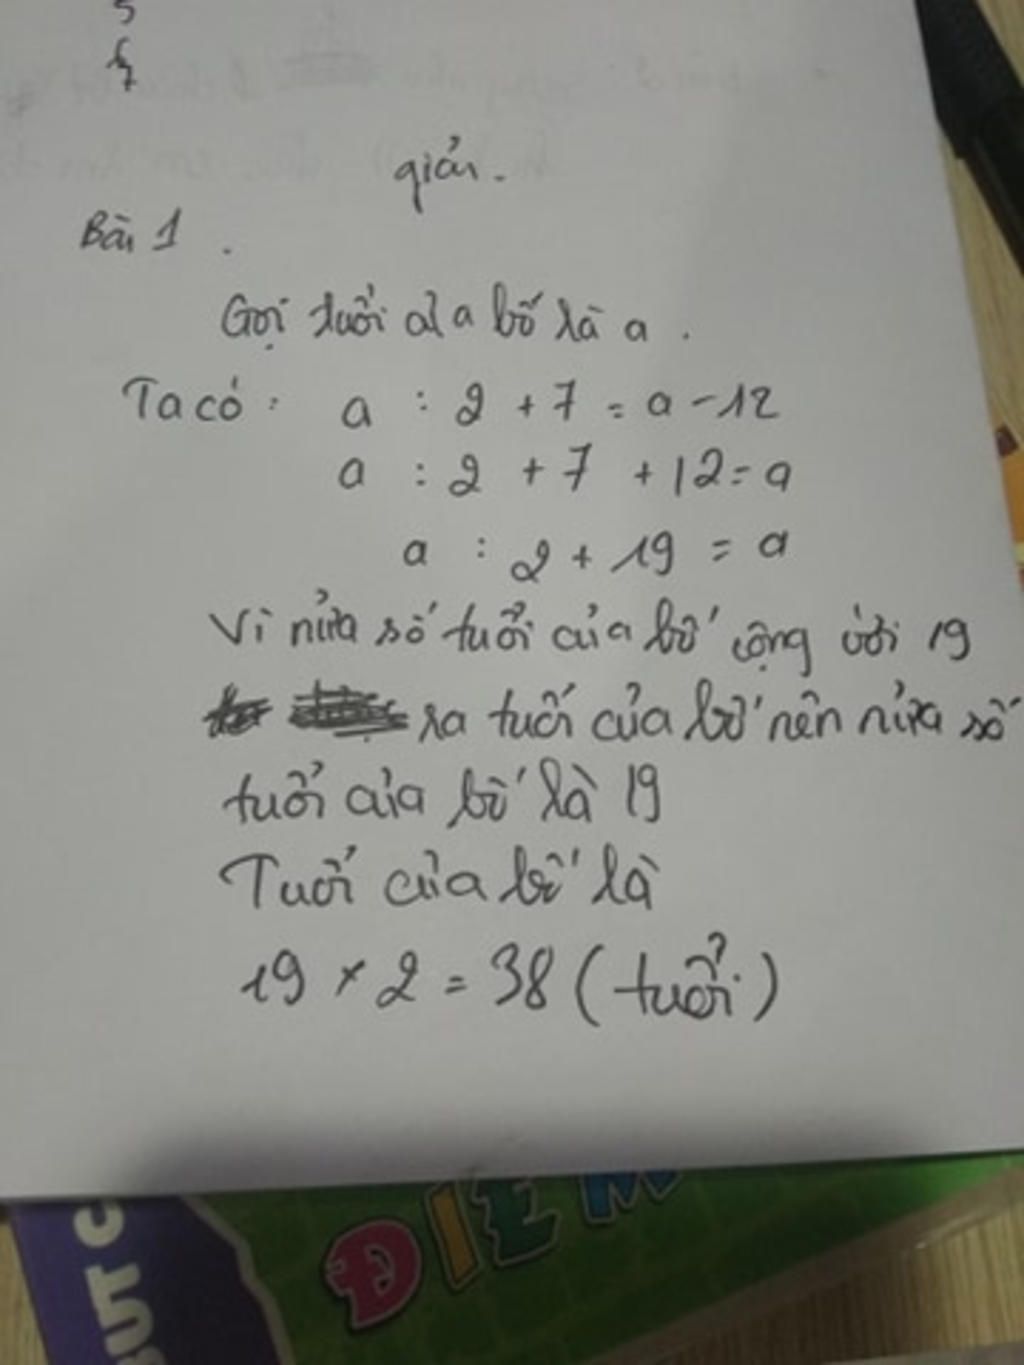 giải.
Bài 1.
Gọi tuổi của bố là a.
Ta có: a : 2 + 7 = a - 12
a : 2 + 7 + 12 = a
a : 2 + 19 = a
Vì nửa số tuổi của bố cộng với 19
ra tuổi của bố nên nửa số
tuổi của bố là 19
Tuổi của bố là
19 x 2 = 38 (tuổi)
BÚT C
ĐIỂM